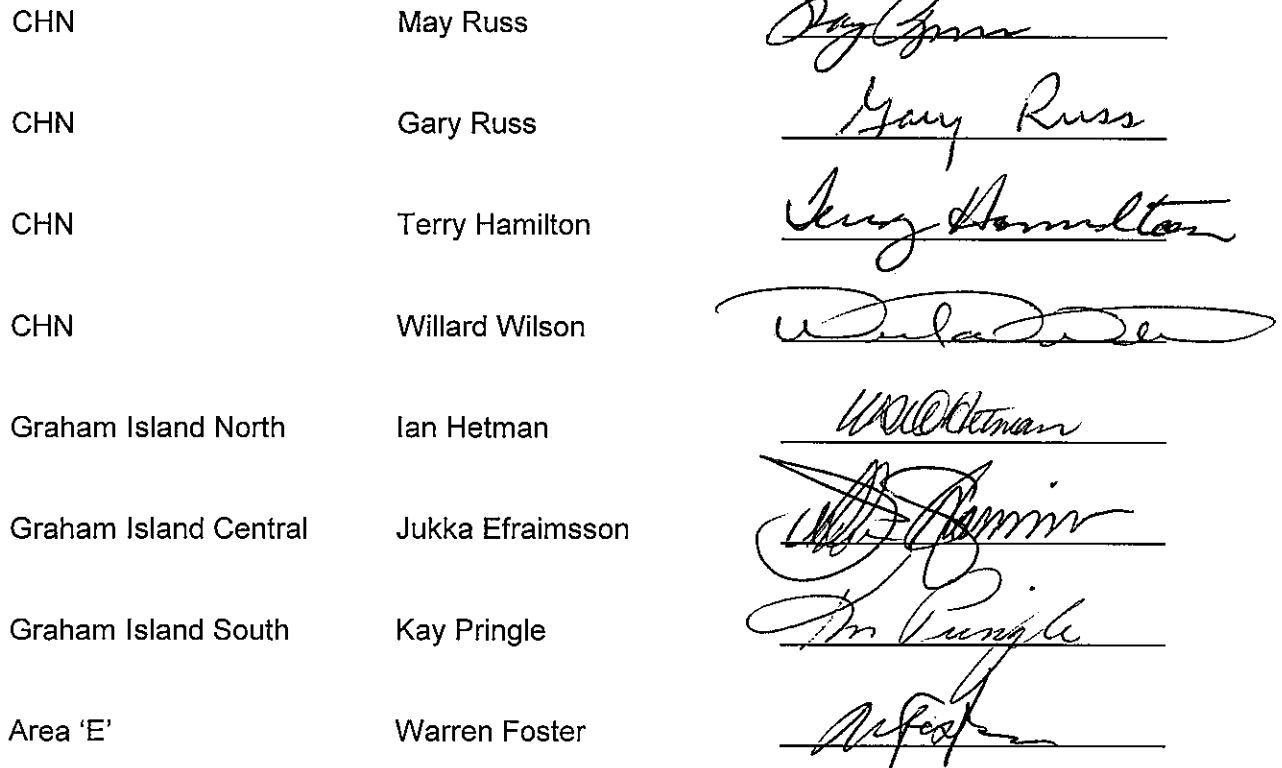 CHN May Russ
CHN Gary Russ Gary Russ
CHN Terry Hamilton Terry Hamilton
CHN Willard Wilson
Graham Island North Ian Hetman Hetman
Graham Island Central Jukka Efraimsson
Graham Island South Kay Pringle Pringle
Area ‘E’ Warren Foster